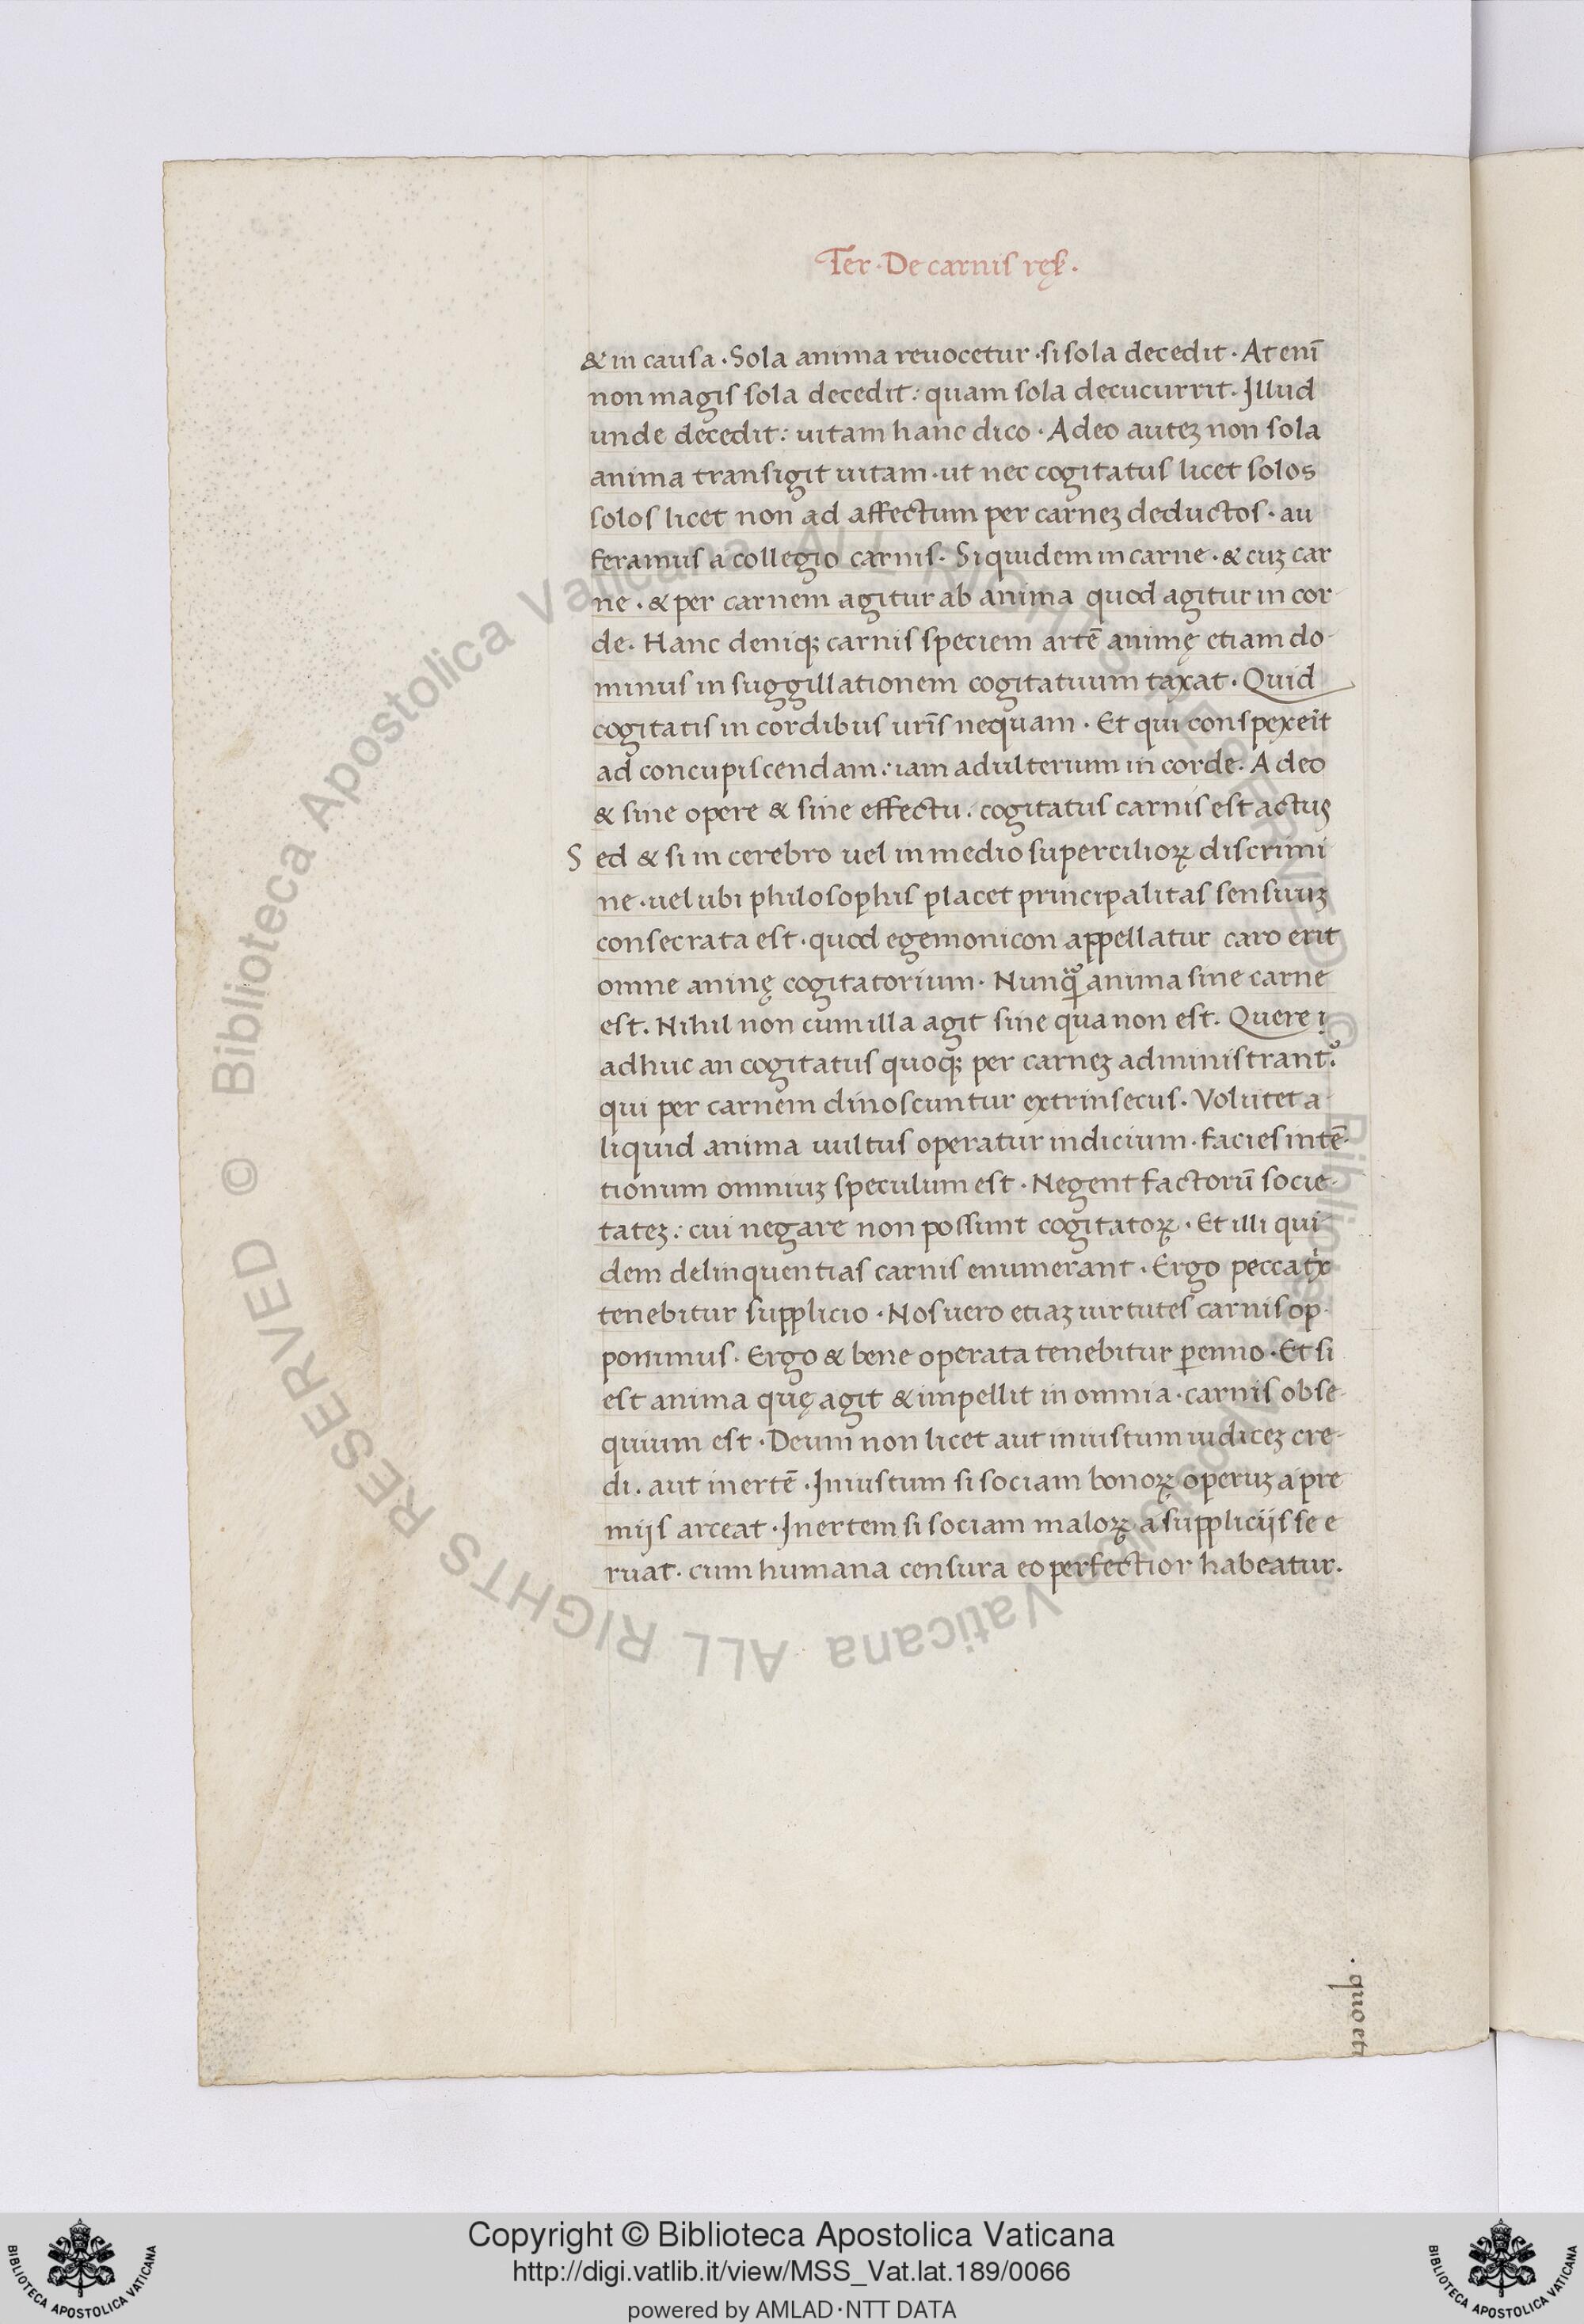 Ter · De carnis ręſ ·
& in causa · Sola anima reuocetur · si sola decedit · At enĩ
non magis sola decedit : quam sola decucurrit · Illud
unde decedit : uitam hanc dico · Adeo auteʒ non sola
anima transigit uitam · ut nec cogitatus licet solos
solos licet non ad affectum per carneʒ deductos · au
feramus a collegio carnis · Siquidem in carne · & cuʒ car
ne · & per carnem agitur ab anima quod agitur in cor-
de · Hanc deniqꝫ carnis speciem artẽ animę etiam do-
minus in suggillationem cogitatuum taxat · Quid
cogitatis in cordibus urĩs nequam · Et qui conspexeĩt
ad concupiscendam : iam adulterium in corde · Adeo
& sine opere & sine effectu · cogitatus carnis est actus
Sed & si in cerebro uel in medio superciliorꝝ discrimi
ne · uel ubi philosophis placet principalitas sensuuʒ
consecrata est · quod egemonicon appellatur caro erit
omne aninę cogitatorium · Nunqᷓ anima sine carne
est · Nihil non cum illa agit sine qua non est · Quere i
adhuc an cogitatus quoqꝫ per carneʒ administrant᷑
qui per carnem dinoscuntur extrinsecus · Volutet a-
liquid anima uultus operatur indicium · facies intẽ-
tionum omniuʒ speculum est · Negent factorũ socie-
tateʒ : cui negare non possunt cogitatoꝝ · Et illi qui
dem delinquentias carnis enumerant · Ergo peccatĩx
tenebitur supplicio · Nos uero etiaʒ uirtutes carnis op-
ponimus · Ergo & bene operata tenebitur p̄emio · Et si
est anima quę agit & impellit in omnia · carnis obse-
quium est · Deum non licet aut iniustum iudiceʒ cre-
di · aut inertẽ · Iniustum si sociam bonoꝝ operuʒ a pre
mijs arceat · Inertem si sociam maloꝝ a supplicijs se e
ruat · cum humana censura eo perfectior habeatur ·
· quo et
© Biblioteca Apostolica Vaticana ALL RIGHTS RESERVED © Biblioteca Apostolica Vaticana ALL RIGHTS RESERVED
Copyright © Biblioteca Apostolica Vaticana
http://digi.vatlib.it/view/MSS_Vat.lat.189/0066
powered by AMLAD·NTT DATA
BIBLIOTECA APOSTOLICA VATICANA
BIBLIOTECA APOSTOLICA VATICANA